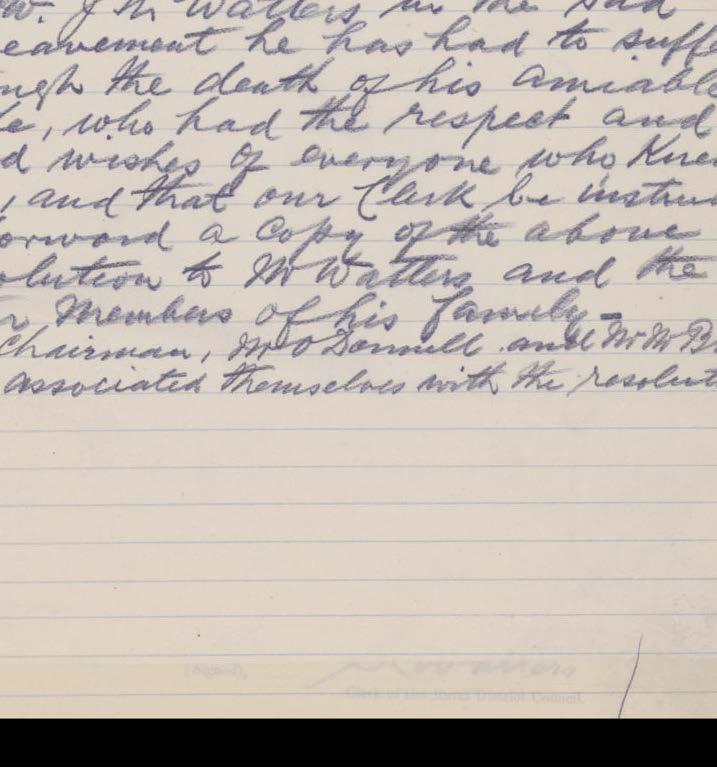 w. J M Watters in the sad
eavement he has had to suffe
ugh the death of his amiable
fe, who had the respect and
d wishes of everyone who Knew
, and that our Clerk be instru
orward a Copy of the above
olution to Mr Watters and the
r Members of his family-
Chairman, Mr O'Donnell and Mr McB
associated themselves with the resolut
(Signed),
Clerk of the Rural District Council.